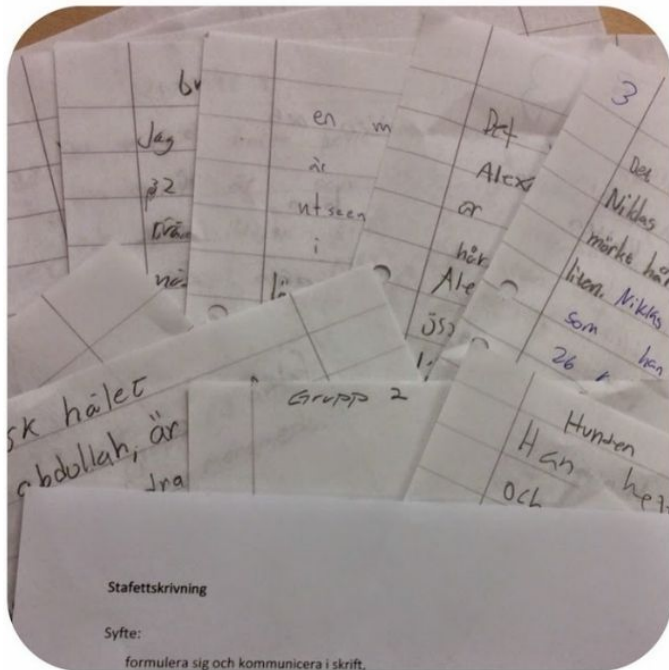 Jag
32
en
är
utseen
i
Det
Alex
är
hår
Ale
3
Det
Niklas
mörkt hår
liten. Niklas
som han
26
sk hålet
abdullah, är
dra
Grupp 2
Hunden
Han
och
Stafettskrivning
Syfte:
formulera sig och kommunicera i skrift,